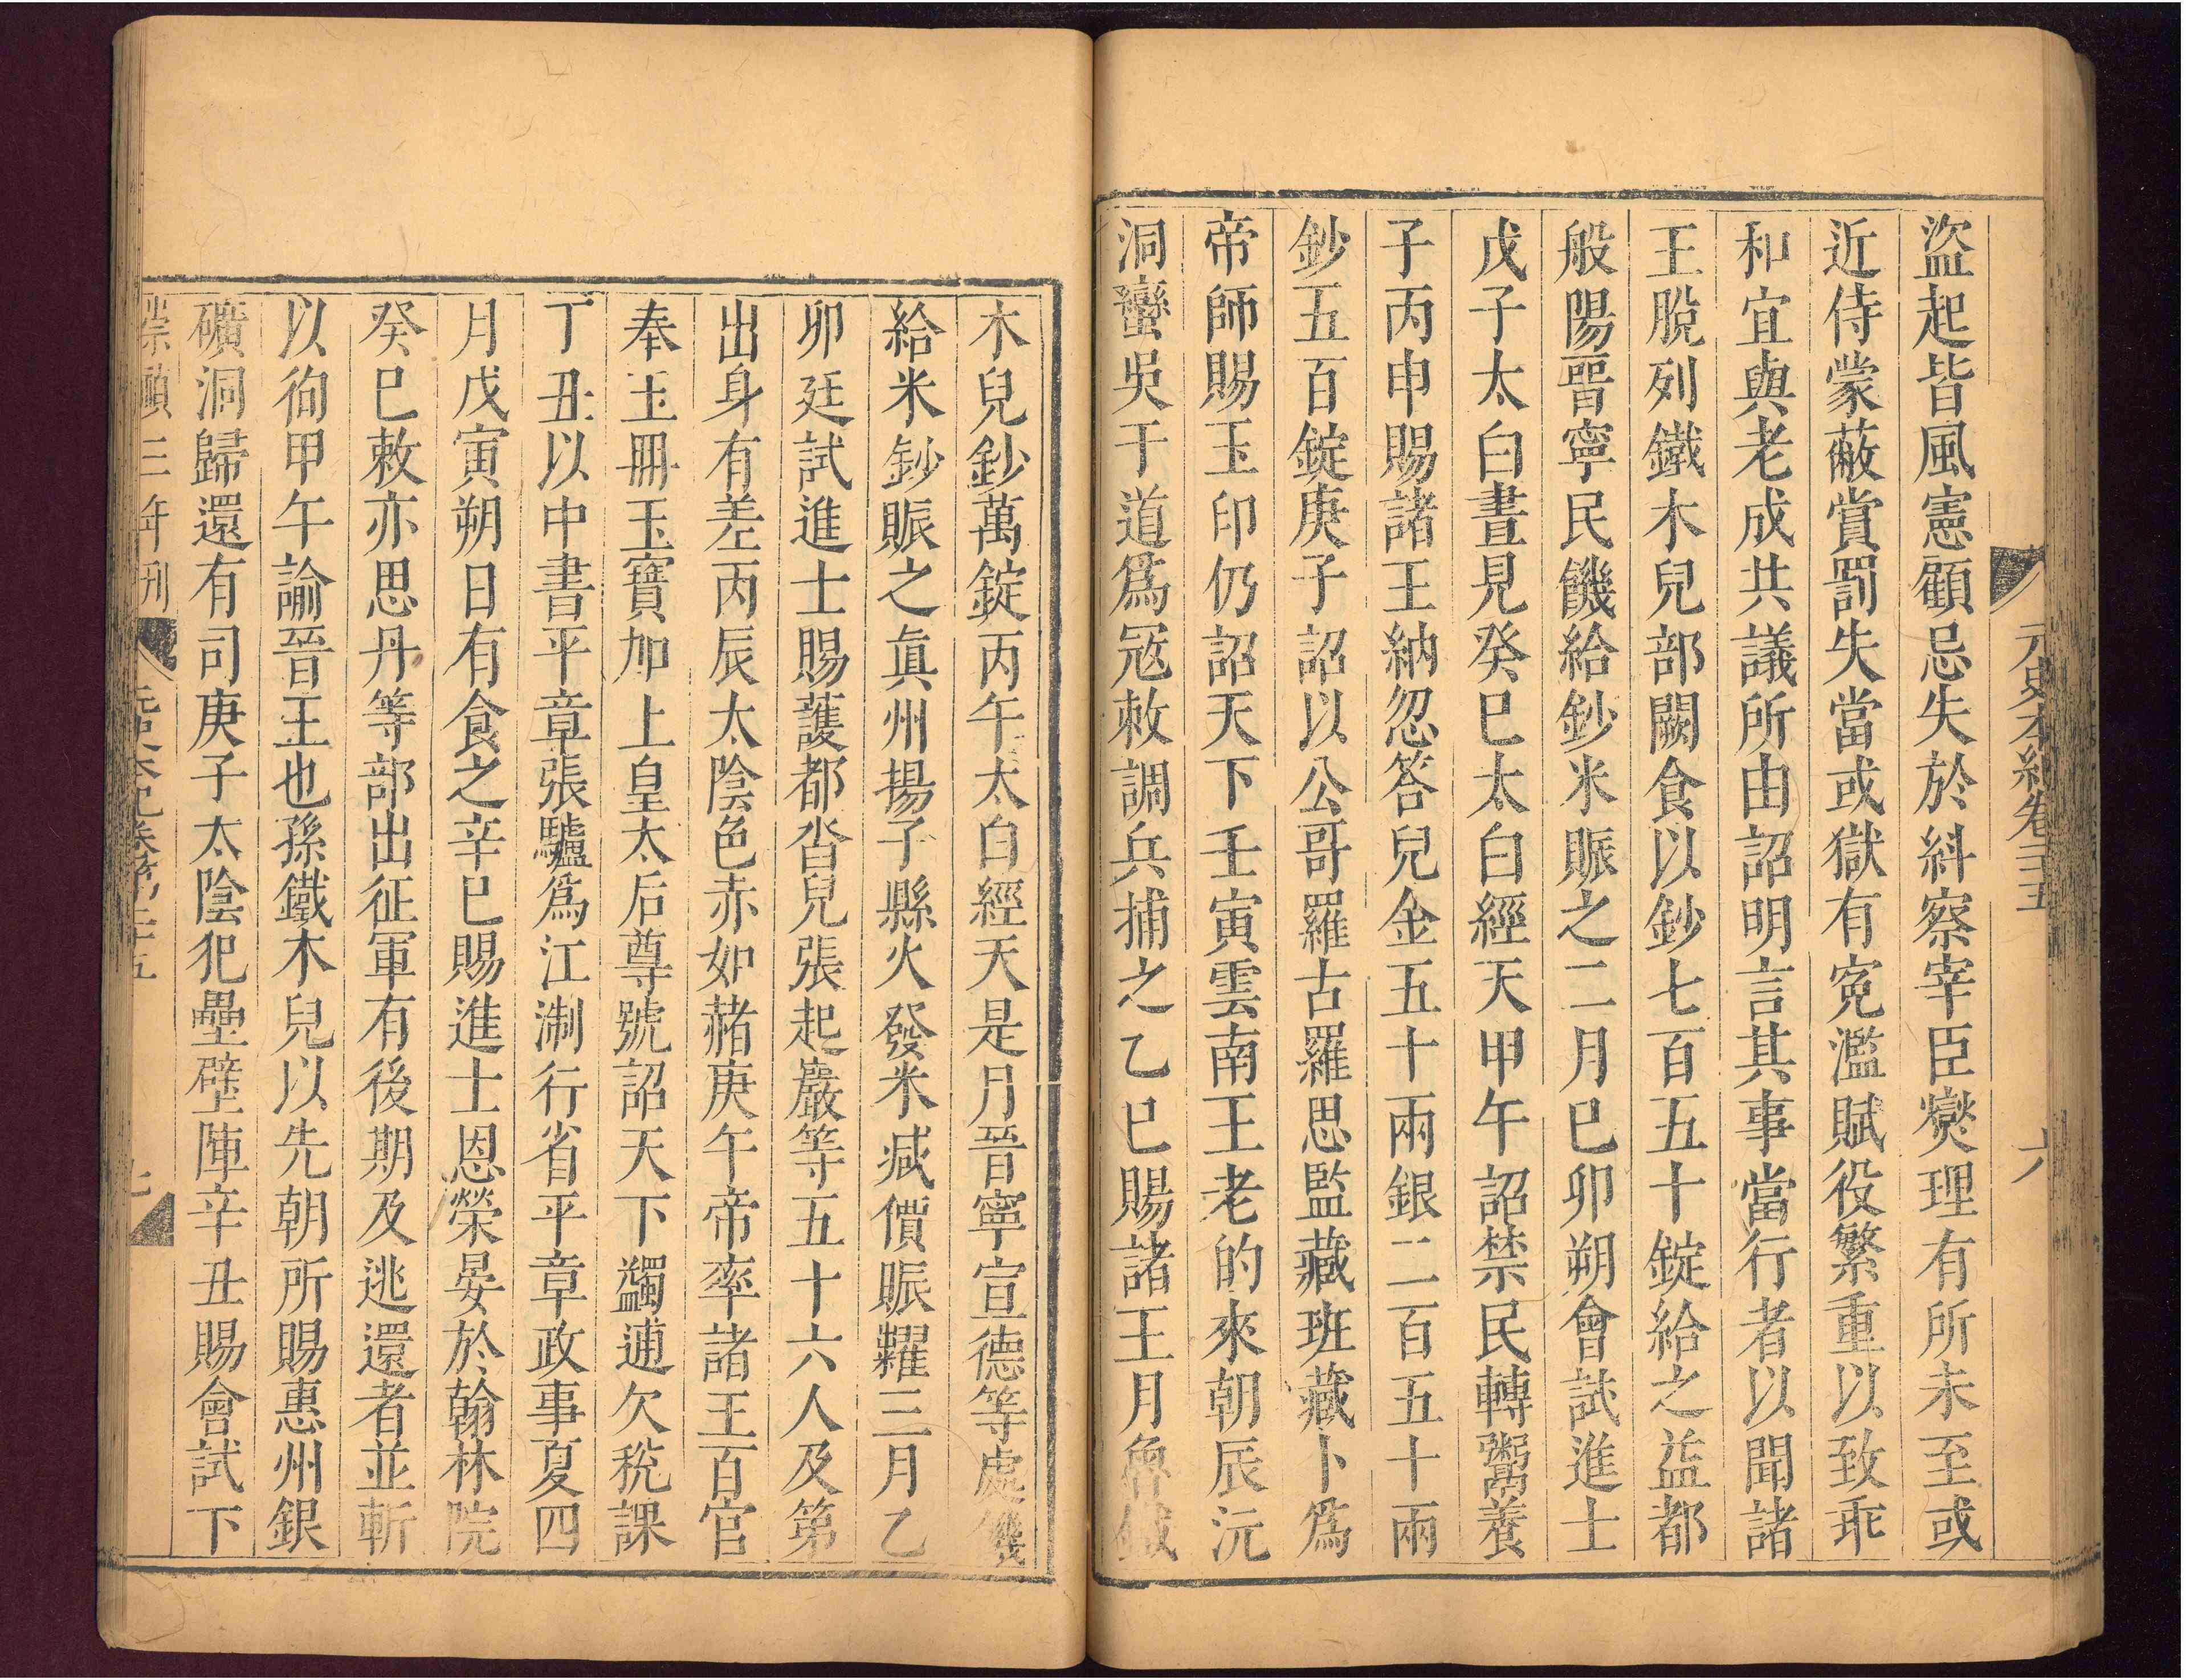 元史本紀卷二十五
六
盜起皆風憲顧忌失於糾察宰臣燮理有所未至或
近侍蒙蔽賞罰失當或獄有寃濫賦役繁重以致乖
和宜與老成共議所由詔明言其事當行者以聞諸
王脫列鐵木兒部闕食以鈔七百五十錠給之益都
般陽晋寧民饑給鈔米賑之二月巳卯朔會試進士
戊子太白晝見癸巳太白經天甲午詔禁民轉鬻養
子丙申賜諸王納忽答兒金五十兩銀二百五十兩
鈔五百錠庚子詔以公哥羅古羅思監藏班藏卜爲
帝師賜玉印仍詔天下壬寅雲南王老的來朝辰沅
洞蠻吳干道爲冦敕調兵捕之乙巳賜諸王月魯鐵
木兒鈔萬錠丙午太白經天是月晉寧宣德等處饑
給米鈔賑之眞州揚子縣火發米减價賑糶三月乙
卯廷試進士賜護都沓兒張起巖等五十六人及第
出身有差丙辰太陰色赤如赭庚午帝率諸王百官
奉玉冊玉寶加上皇太后尊號詔天下蠲逋欠稅課
丁丑以中書平章張驢爲江淛行省平章政事夏四
月戊寅朔日有食之辛巳賜進士恩榮宴於翰林院
癸巳敕亦思丹等部出征軍有後期及逃還者並斬
以徇甲午諭晉王也孫鐵木兒以先朝所賜惠州銀
礦洞歸還有司庚子太陰犯壘壁陣辛丑賜會試下
崇禎三年刊
元史本紀卷第二十五
七